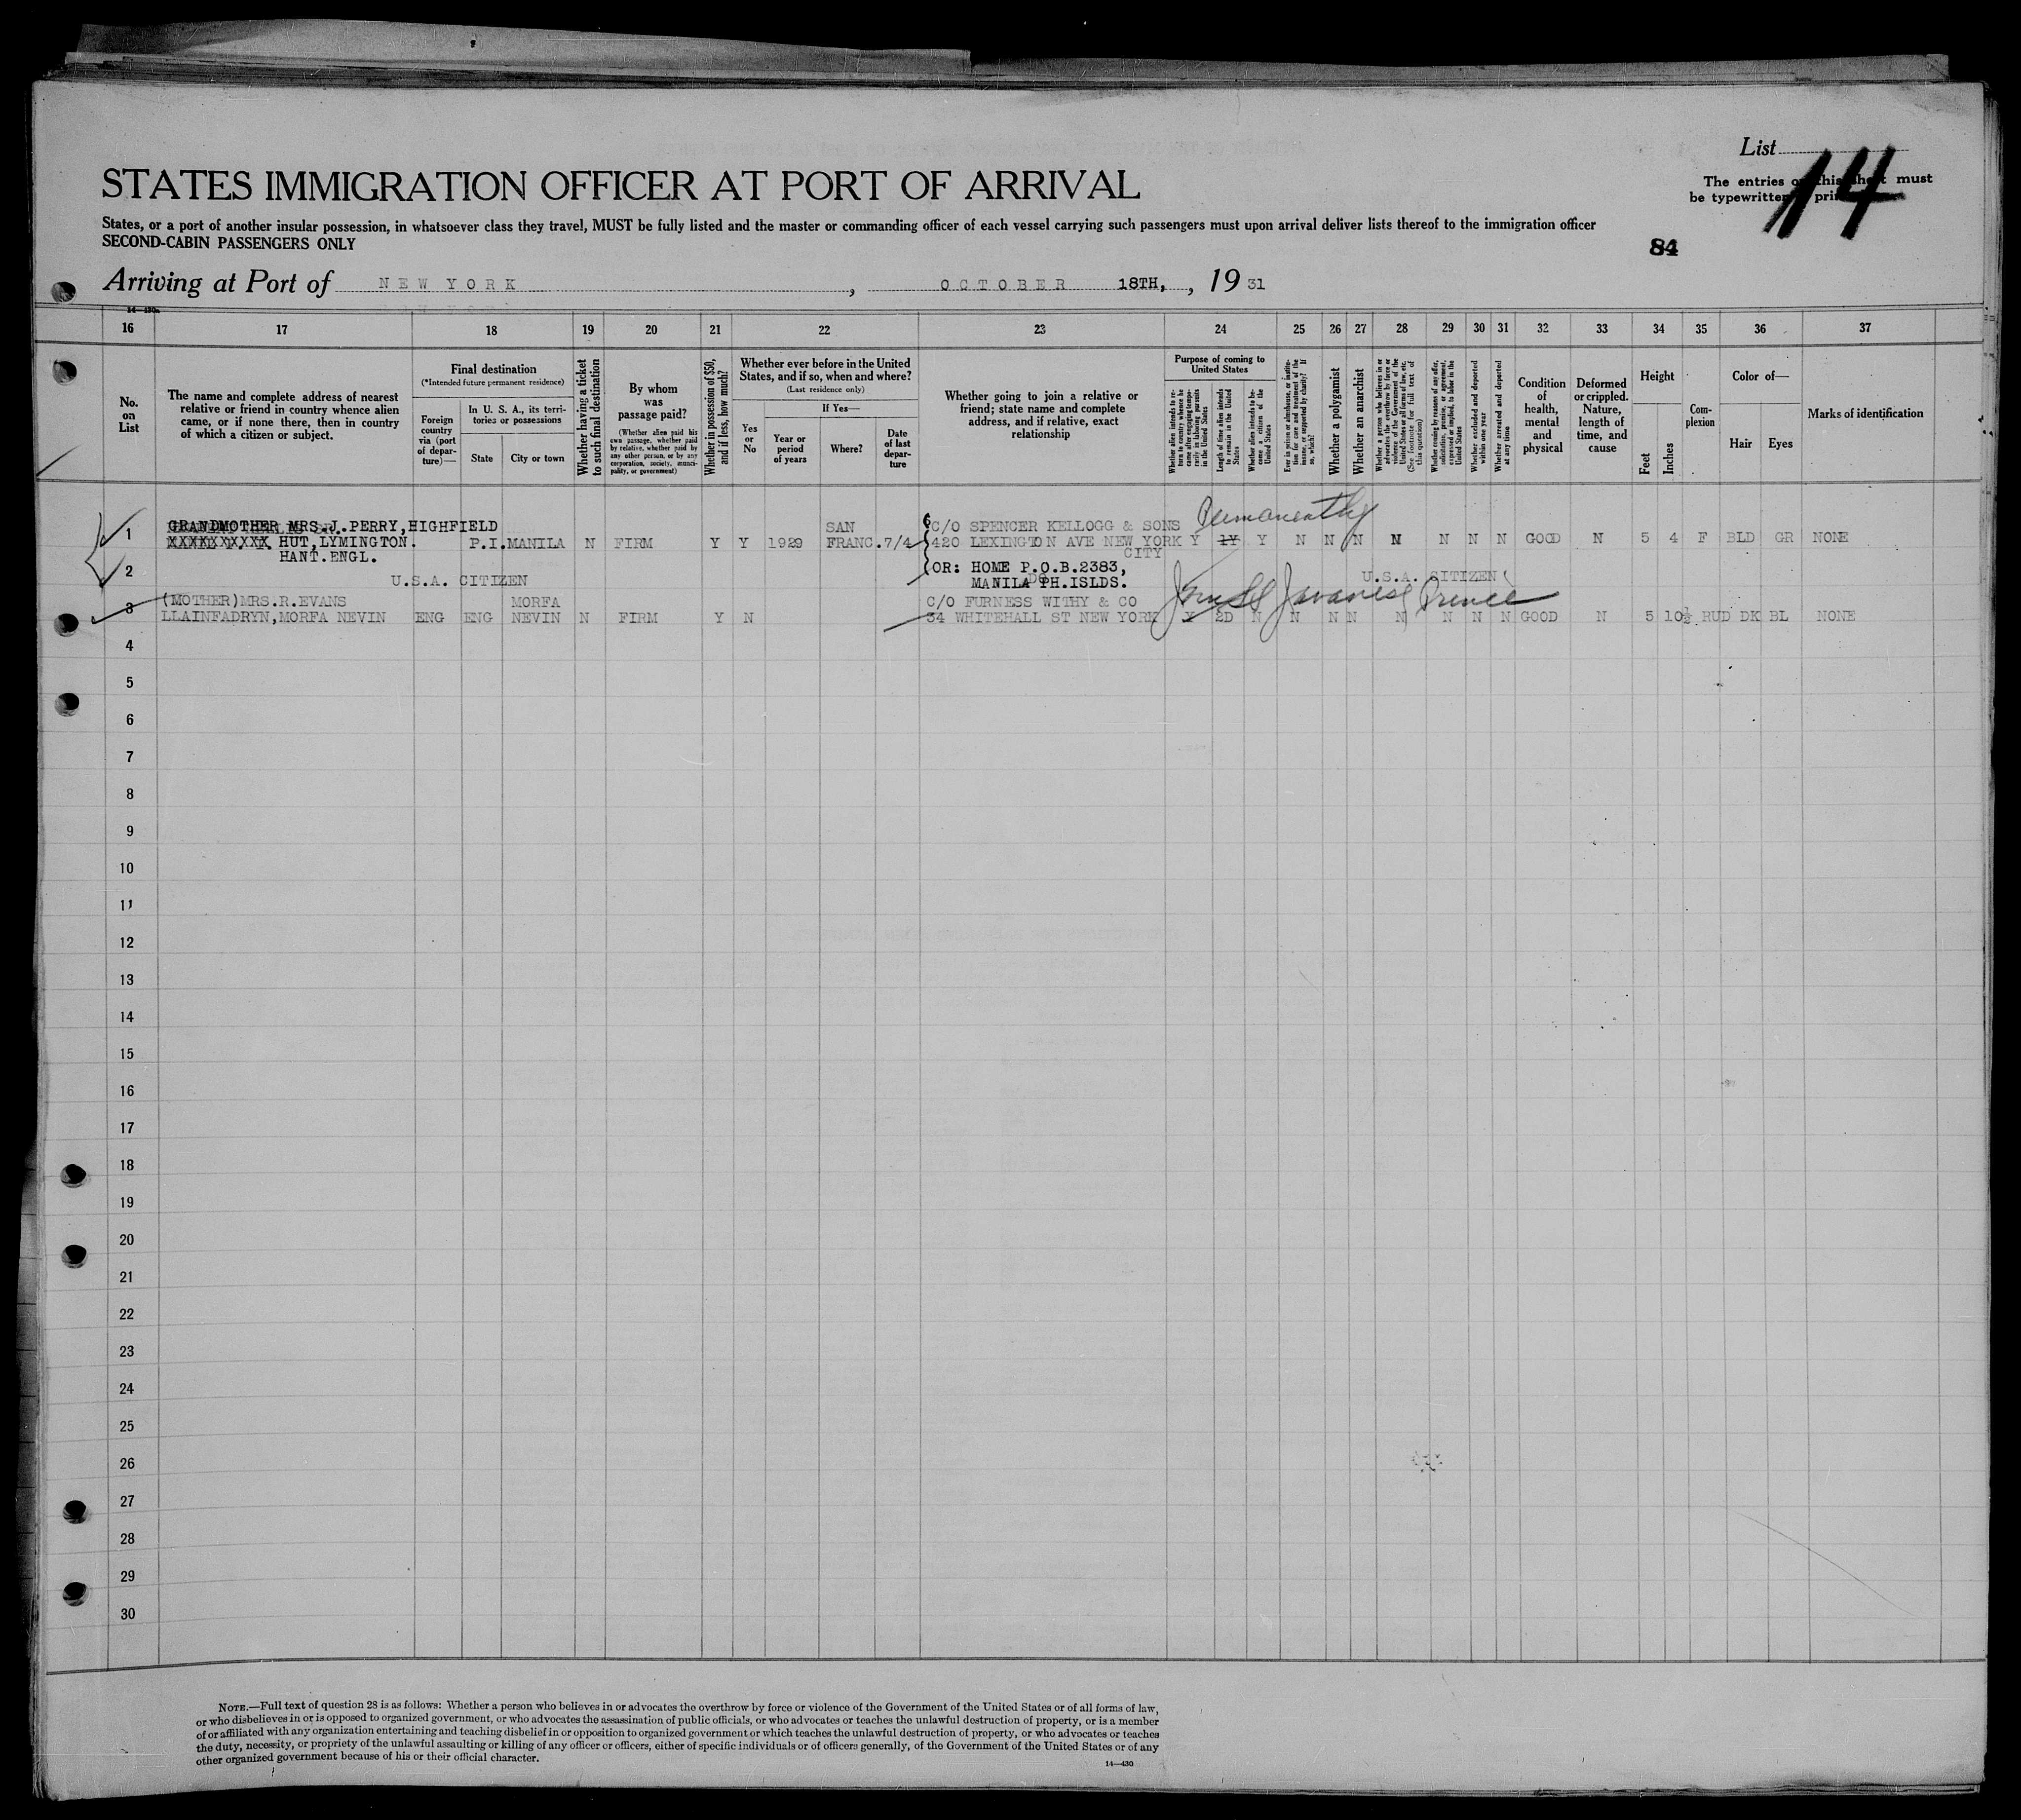 List
14
The entries on this sheet must
be typewritten or printed
STATES IMMIGRATION OFFICER AT PORT OF ARRIVAL
States, or a port of another insular possession, in whatsoever class they travel, MUST be fully listed and the master or commanding officer of each vessel carrying such passengers must upon arrival deliver lists thereof to the immigration officer
SECOND-CABIN PASSENGERS ONLY
84
Arriving at Port of NEW YORK, OCTOBER 18TH, 1931
14—430a
16 17 18 19 20 21 22 23 24 25 26 27 28 29 30 31 32 33 34 35 36 37
No. on List
The name and complete address of nearest relative or friend in country whence alien came, or if none there, then in country of which a citizen or subject.
Final destination
(*Intended future permanent residence)
Foreign country via (port of departure)—
In U. S. A., its territories or possessions
State
City or town
Whether having a ticket to such final destination
By whom was passage paid?
(Whether alien paid his own passage, whether paid by relative, whether paid by any other person, or by any corporation, society, municipality, or government)
Whether in possession of $50, and if less, how much?
Whether ever before in the United States, and if so, when and where?
(Last residence only)
Yes or No
If Yes—
Year or period of years
Where?
Date of last departure
Whether going to join a relative or friend; state name and complete address, and if relative, exact relationship
Purpose of coming to United States
Whether alien intends to return to country whence he came after engaging temporarily in laboring pursuits in the United States
Length of time alien intends to remain in the United States
Whether alien intends to become a citizen of the United States
Ever in prison or almshouse, or institution for care and treatment of the insane, or supported by charity? If so, which?
Whether a polygamist
Whether an anarchist
Whether a person who believes in or advocates the overthrow by force or violence of the Government of the United States or all forms of law, etc. (See footnote for full text of this question)
Whether coming by reasons of any offer, solicitation, promise, or agreement, expressed or implied, to labor in the United States
Whether excluded and deported within one year
Whether arrested and deported at any time
Condition of health, mental and physical
Deformed or crippled. Nature, length of time, and cause
Height
Feet
Inches
Complexion
Color of—
Hair
Eyes
Marks of identification
Permanently
GRANDMOTHER MRS.J.PERRY,HIGHFIELD SAN C/O SPENCER KELLOGG & SONS
1 XXXXXXXXXX HUT,LYMINGTON. P.I. MANILA N FIRM Y Y 1929 FRANC. 7/4 420 LEXINGTON AVE NEW YORK Y 1Y Y N N N N N N N GOOD N 5 4 F BLD GR NONE
HANT.ENGL. CITY
2 OR: HOME P.O.B.2383,
U.S.A. CITIZEN MANILA PH.ISLDS. DO U.S.A. CITIZEN
(MOTHER)MRS.R.EVANS MORFA C/O FURNESS WITHY & CO Javanese Prince
3 LLAINFADRYN,MORFA NEVIN ENG ENG NEVIN N FIRM Y N 34 WHITEHALL ST NEW YORK Y 2D N N N N N N N N GOOD N 5 10½ RUD DK BL NONE
4
5
6
7
8
9
10
11
12
13
14
15
16
17
18
19
20
21
22
23
24
25
26
27
28
29
30
NOTE.—Full text of question 28 is as follows: Whether a person who believes in or advocates the overthrow by force or violence of the Government of the United States or of all forms of law,
or who disbelieves in or is opposed to organized government, or who advocates the assassination of public officials, or who advocates or teaches the unlawful destruction of property, or is a member
of or affiliated with any organization entertaining and teaching disbelief in or opposition to organized government or which teaches the unlawful destruction of property, or who advocates or teaches
the duty, necessity, or propriety of the unlawful assaulting or killing of any officer or officers, either of specific individuals or of officers generally, of the Government of the United States or of any
other organized government because of his or their official character.
14—430